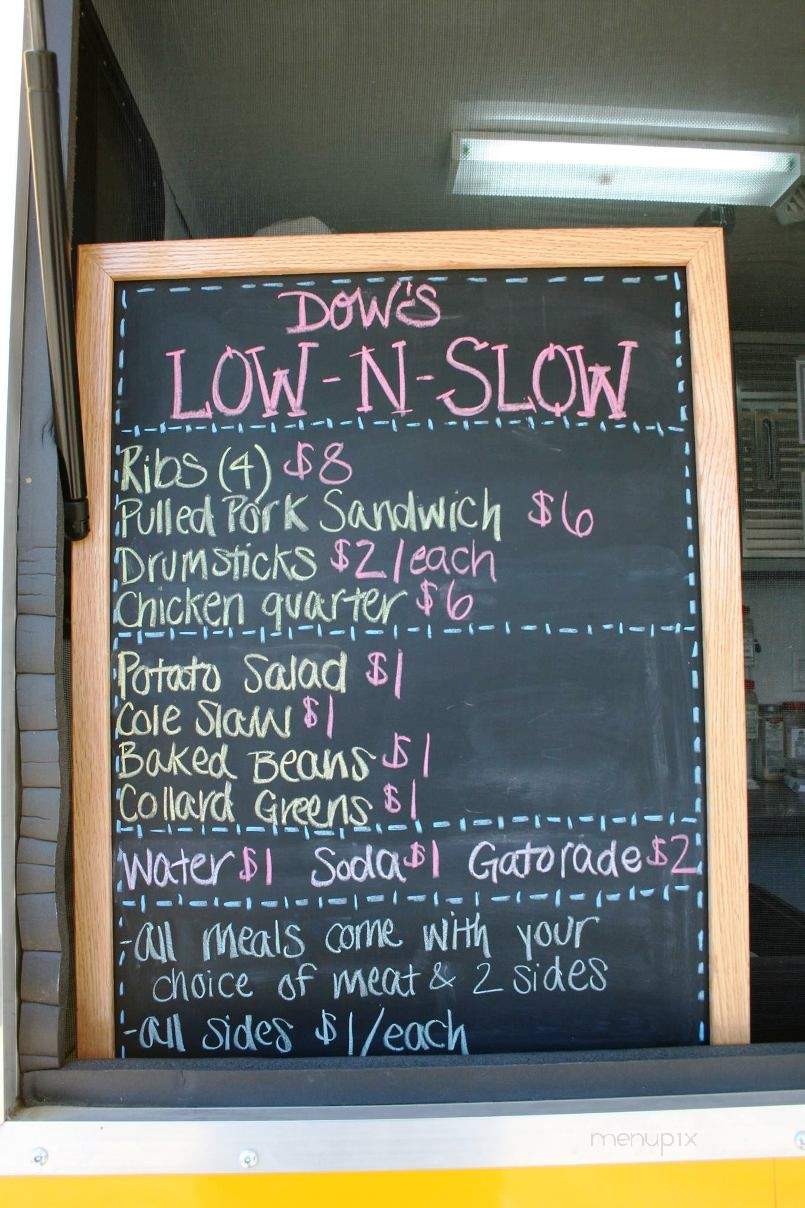 Dow's
LOW-N-SLOW
Ribs (4) $8
Pulled Pork Sandwich $6
Drumsticks $2/each
Chicken quarter $6
Potato Salad $1
Cole Slaw $1
Baked Beans $1
Collard Greens $1
Water $1 Soda $1 Gatorade $2
-all meals come with your
choice of meat & 2 sides
-all sides $1/each
menupix